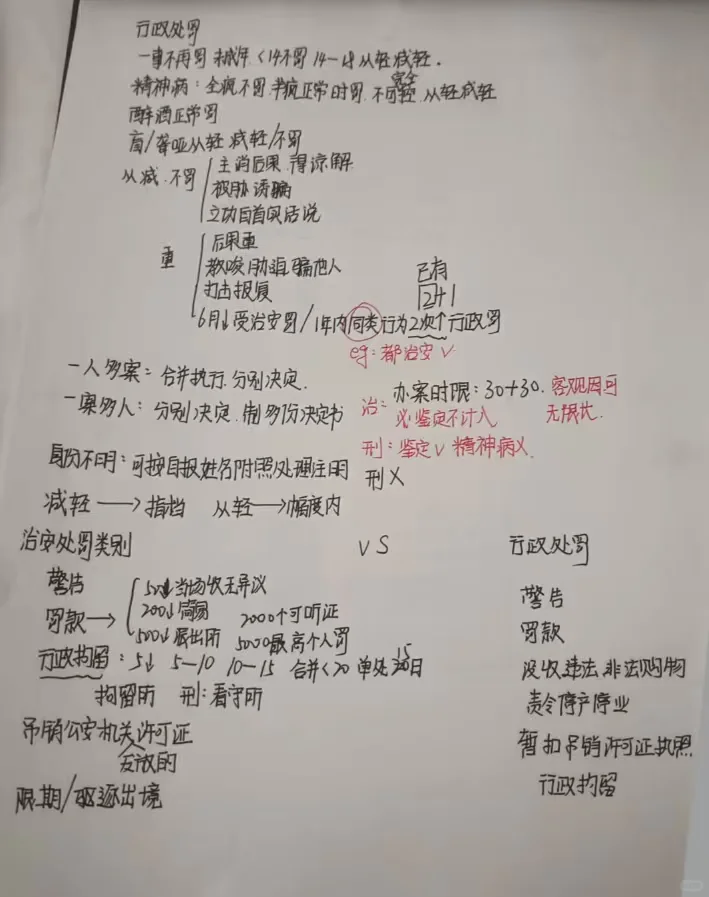 行政处罚
一事不再罚 未成年<14不罚 14-18从轻减轻.
精神病:全疯不罚.半疯正常时罚.不可控.从轻减轻
完全
醉酒正常罚
盲/聋哑从轻 减轻/不罚
从减.不罚
主消后果.得谅解.
被胁诱骗
立功自首实话说
重
后果重
教唆胁迫骗他人
打击报复
6月↓受治安罚/1年内同类行为2次个行政罚
已有
2+1
eg:都治安√
一人多案:合并执行.分别决定.
一案多人:分别决定.制多份决定书
治:办案时限:30+30.客观因可无限长.
必鉴定不计入
刑:鉴定√ 精神病×.
身份不明:可按自报姓名附照处理注明
刑×
减轻→指档 从轻→幅度内
治安处罚类别 VS 行政处罚
警告
罚款→
50↓当场收无异议
200↓简易 2000个可听证
500↓派出所 5000最高个人罚
行政拘留:5↓ 5-10 10-15 合并<20 单处15日
拘留所 刑:看守所
吊销公安机关许可证
发放的
限期/驱逐出境
警告
罚款
没收违法.非法财物
责令停产停业
暂扣吊销许可证执照
行政拘留